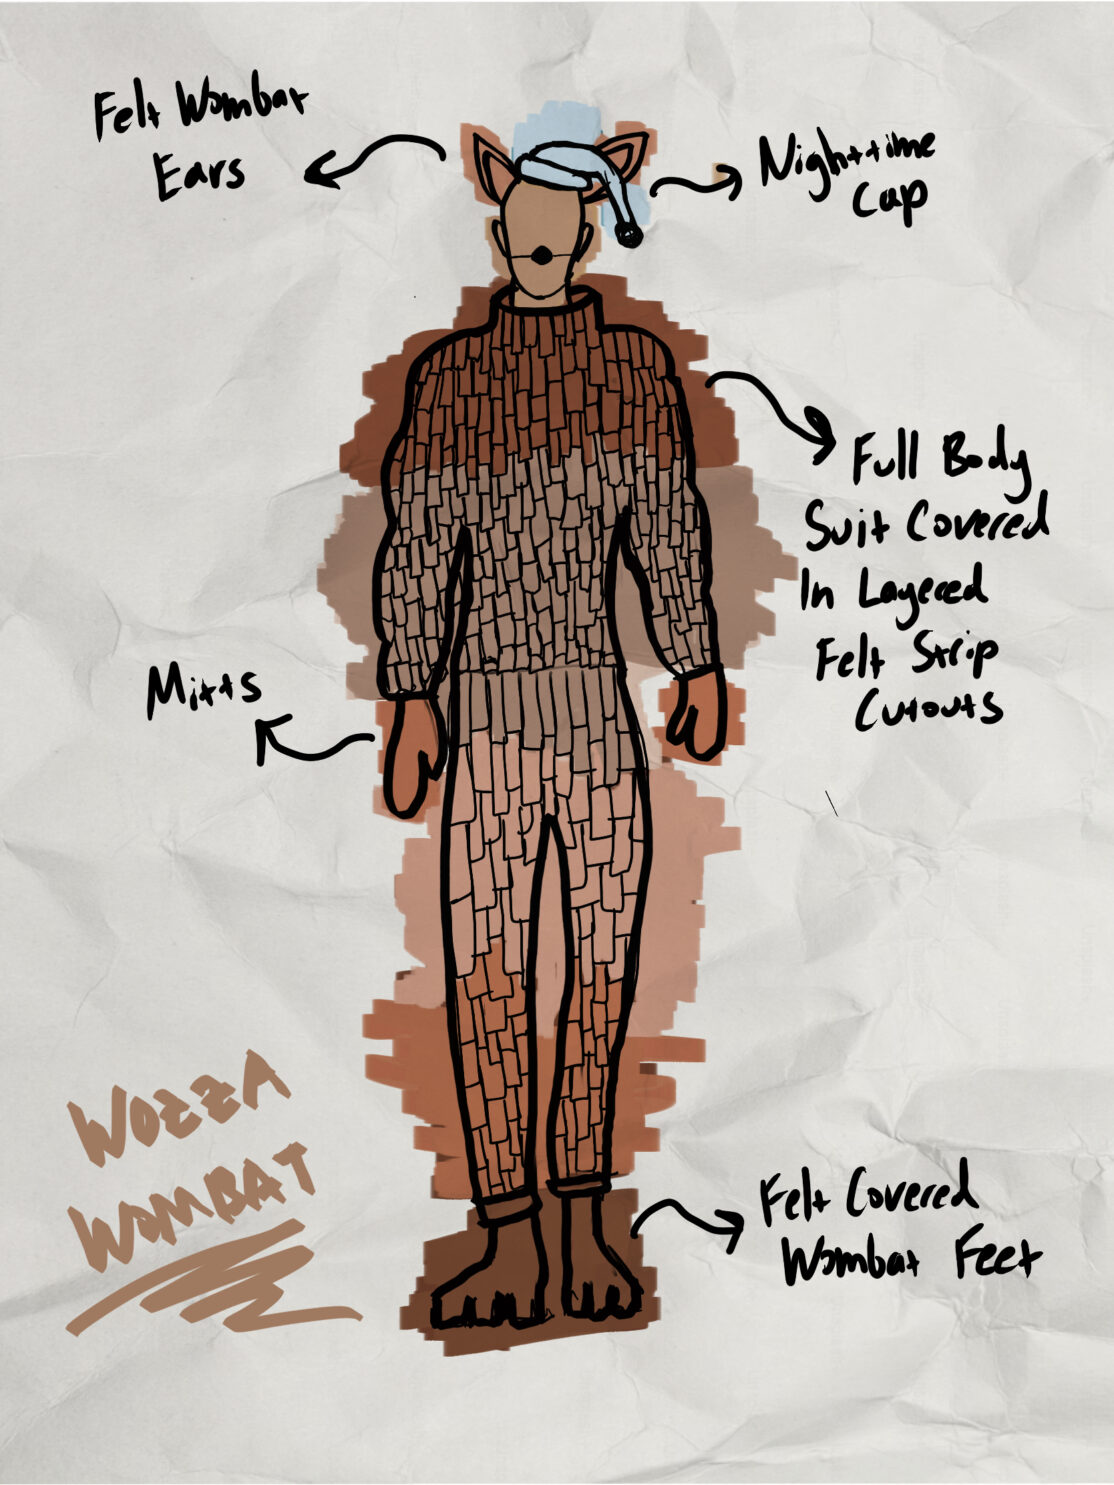 Felt Wombat
Ears
Nighttime
Cap
Full Body
Suit Covered
In Layered
Felt Strip
Cutouts
Mitts
WOZZA
WOMBAT
Felt Covered
Wombat Feet